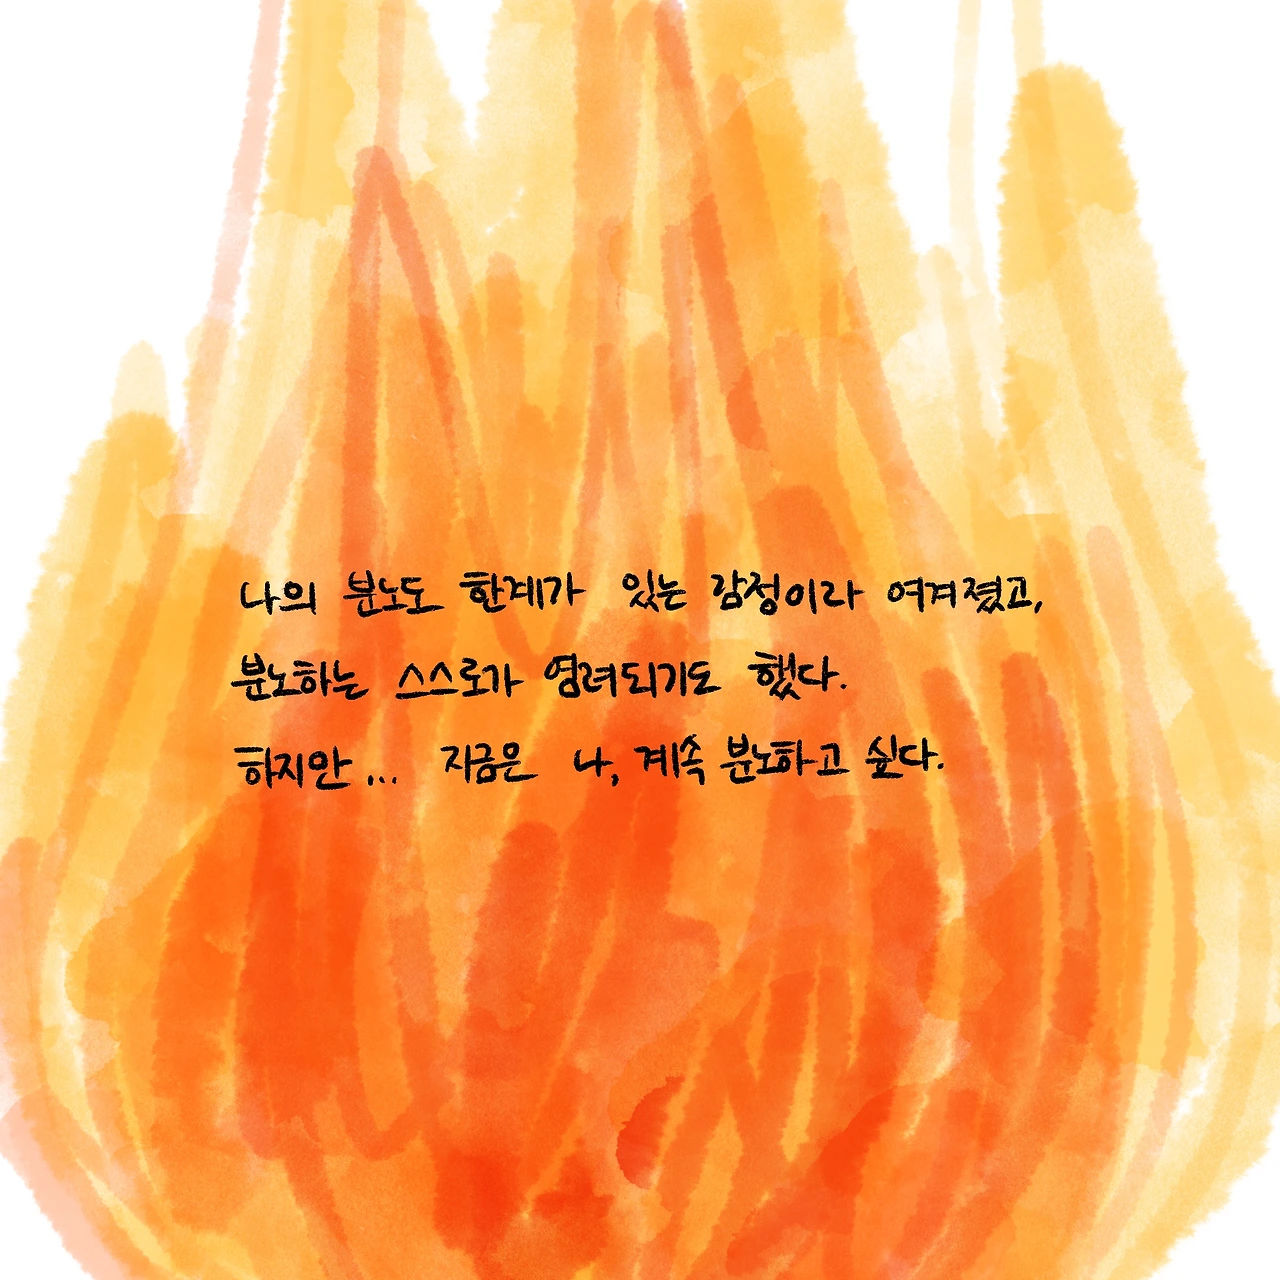 나의 분노도 한계가 있는 감정이라 여겨졌고,
분노하는 스스로가 염려되기도 했다.
하지만... 지금은 나, 계속 분노하고 싶다.